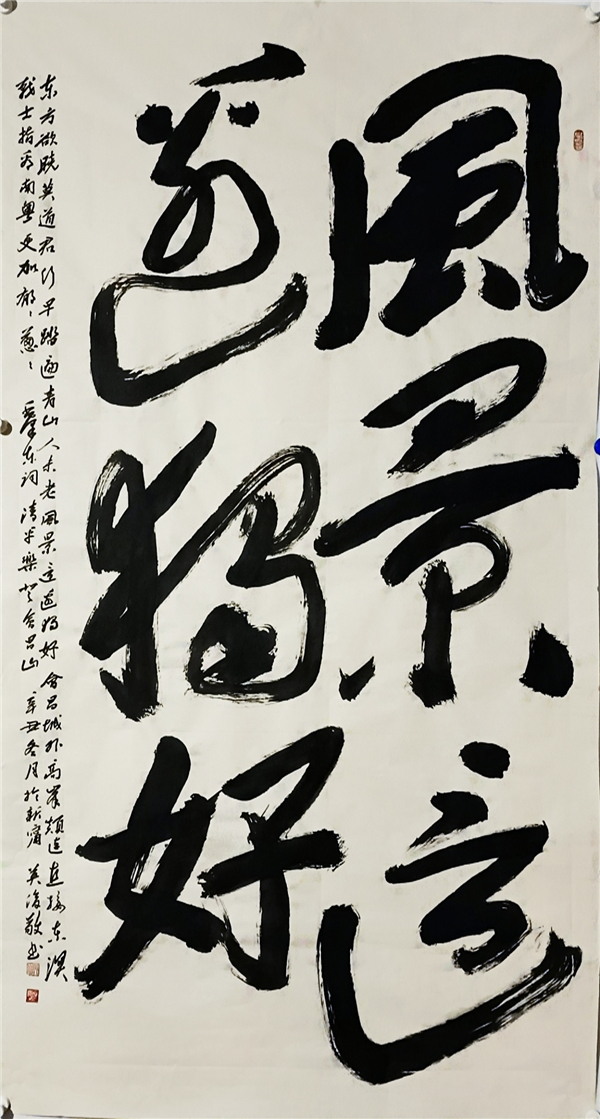 風景這
邊獨好
东方欲晓莫道君行早踏遍青山人未老風景這边独好会昌城外高峯颠连直接东溟
战士指看南粤更加郁〻葱〻 泽东词清平樂会昌山 辛丑冬月於新甯 敬书